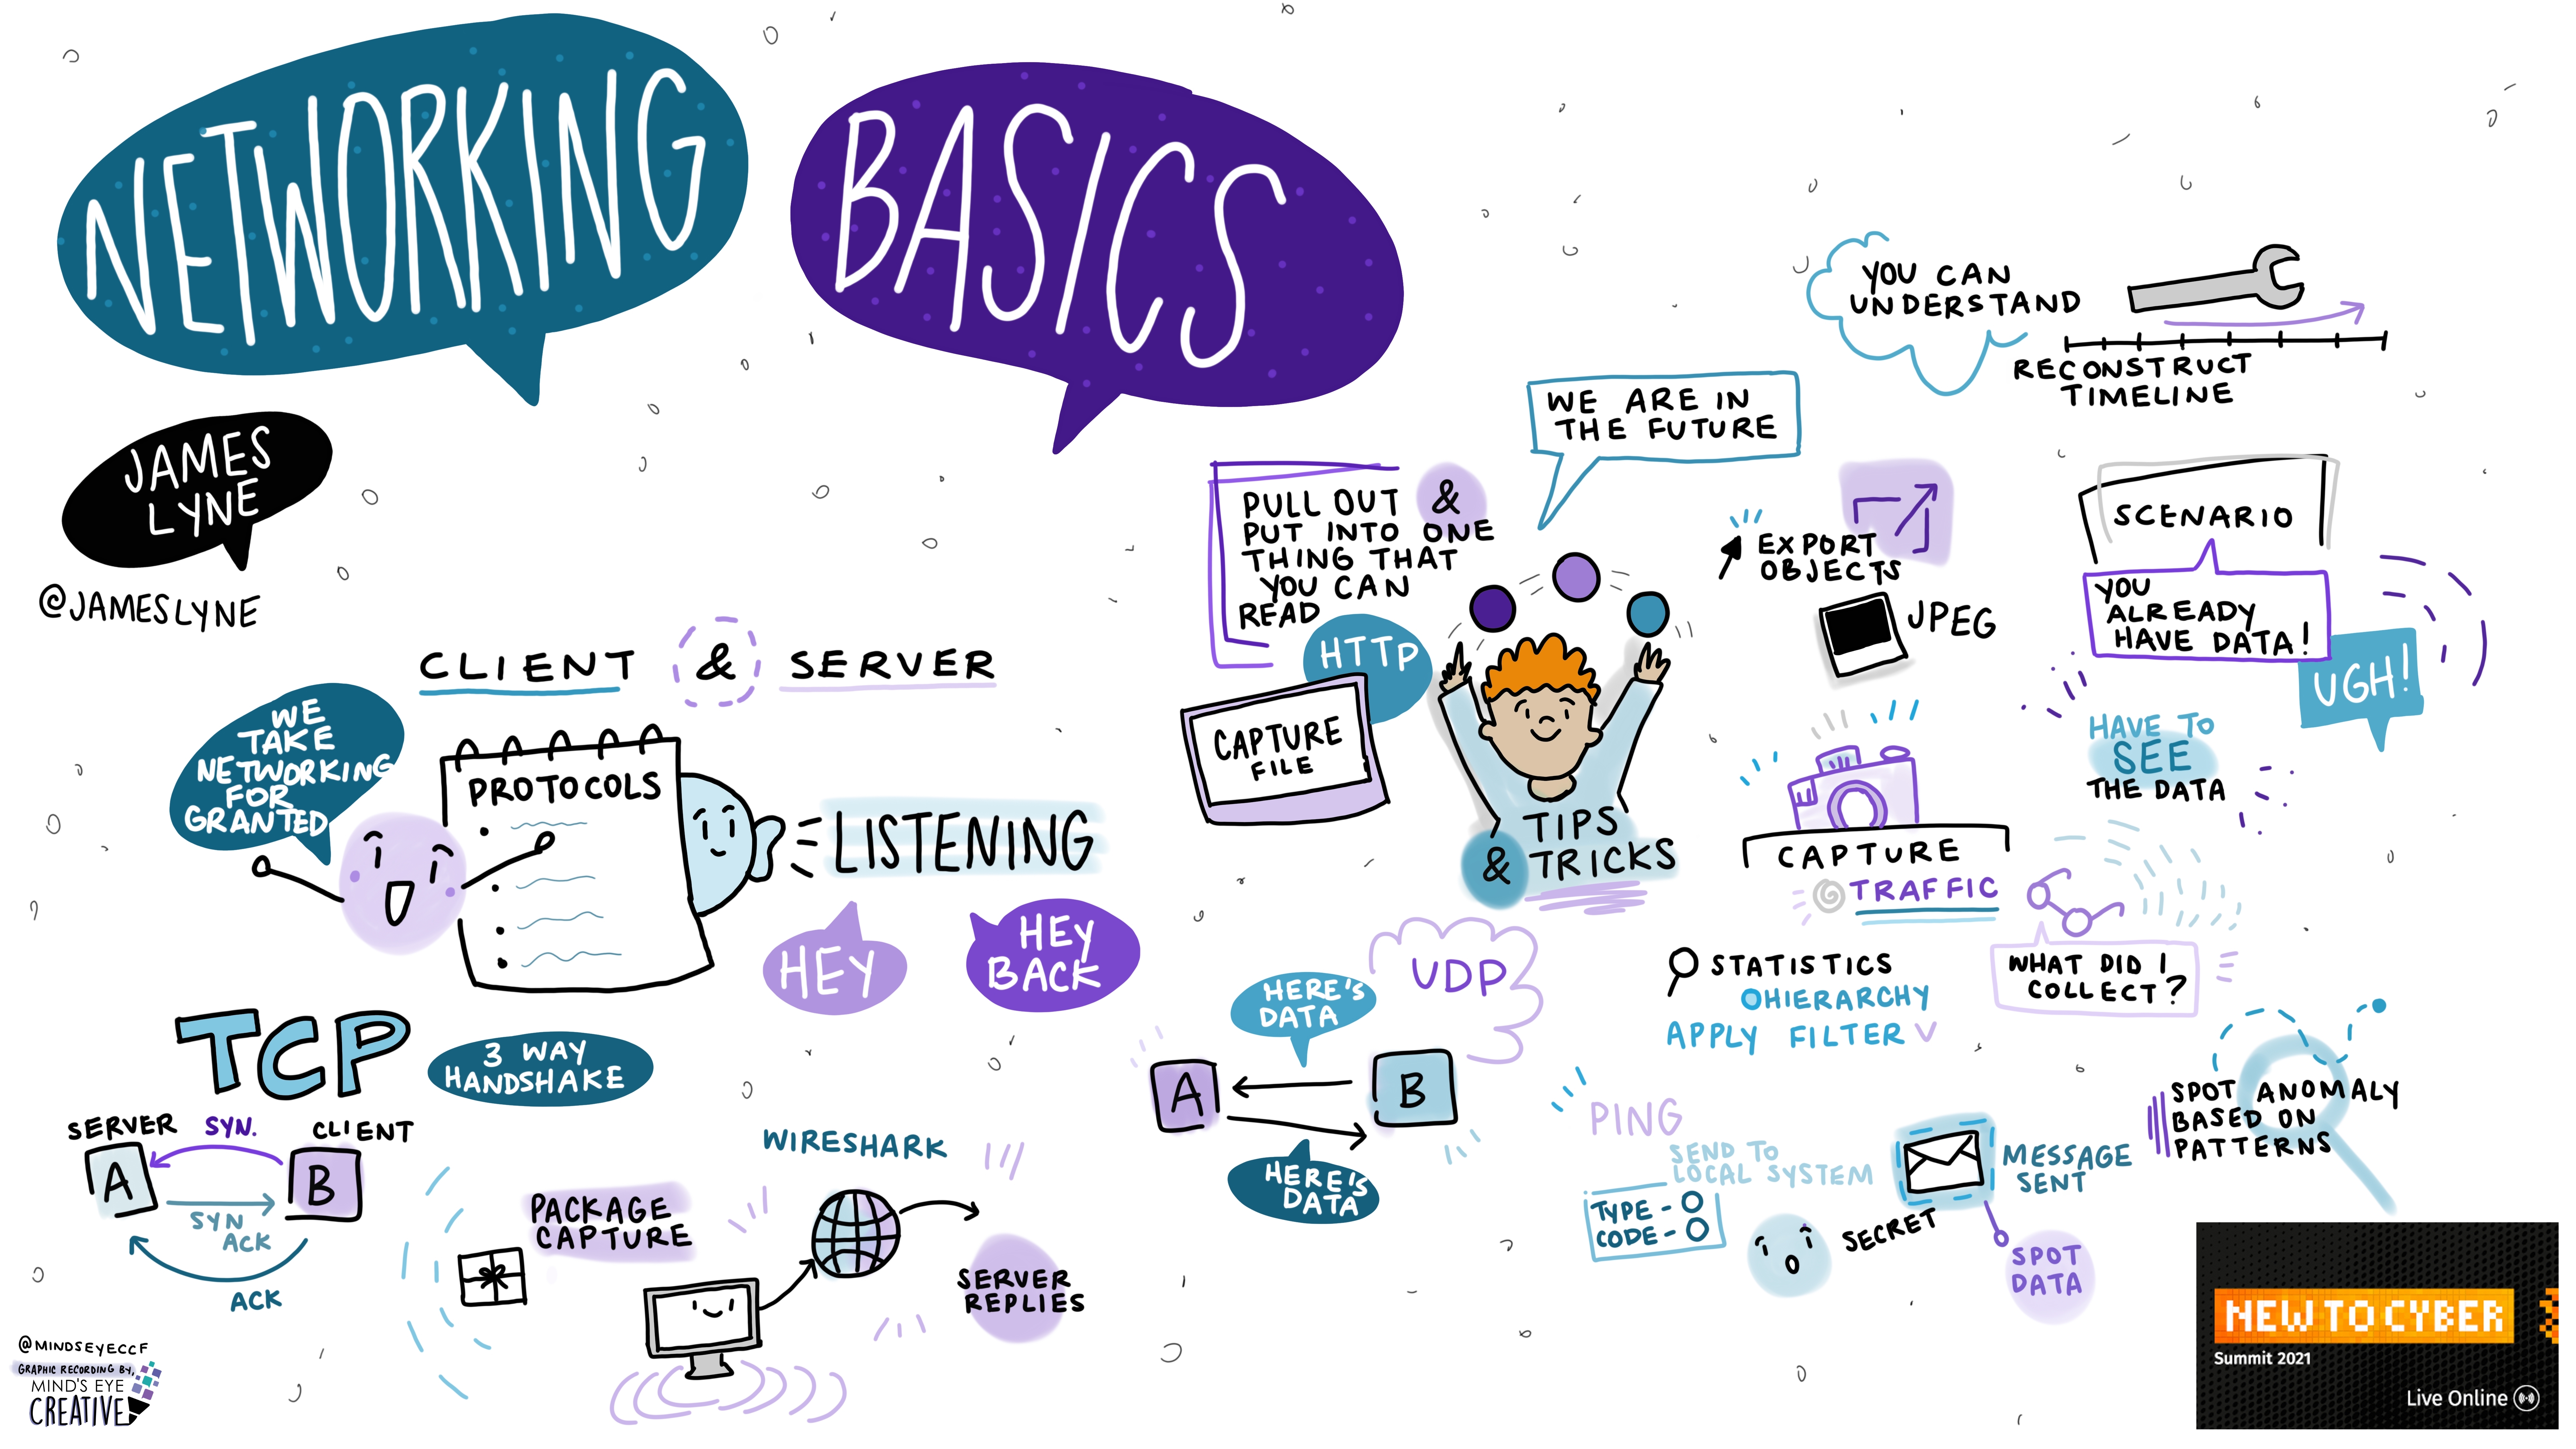 NETWORKING
BASICS
JAMES
LYNE
@JAMESLYNE
CLIENT & SERVER
WE
TAKE
NETWORKING
FOR
GRANTED
PROTOCOLS
LISTENING
HEY
HEY
BACK
TCP
3 WAY
HANDSHAKE
SERVER
SYN.
CLIENT
A
B
SYN
ACK
ACK
WIRESHARK
PACKAGE
CAPTURE
SERVER
REPLIES
@MINDSEYECCF
GRAPHIC RECORDING BY,
MIND'S EYE
CREATIVE
PULL OUT &
PUT INTO ONE
THING THAT
YOU CAN
READ
HTTP
CAPTURE
FILE
WE ARE IN
THE FUTURE
TIPS
& TRICKS
UDP
HERE'S
DATA
A
B
HERE'S
DATA
YOU CAN
UNDERSTAND
RECONSTRUCT
TIMELINE
EXPORT
OBJECTS
JPEG
SCENARIO
YOU
ALREADY
HAVE DATA!
UGH!
HAVE TO
SEE
THE DATA
CAPTURE
TRAFFIC
WHAT DID I
COLLECT?
STATISTICS
HIERARCHY
APPLY FILTER
PING
SEND TO
LOCAL SYSTEM
TYPE - O
CODE - O
SECRET
MESSAGE
SENT
SPOT
DATA
SPOT ANOMALY
BASED ON
PATTERNS
NEW TO CYBER
Summit 2021
Live Online